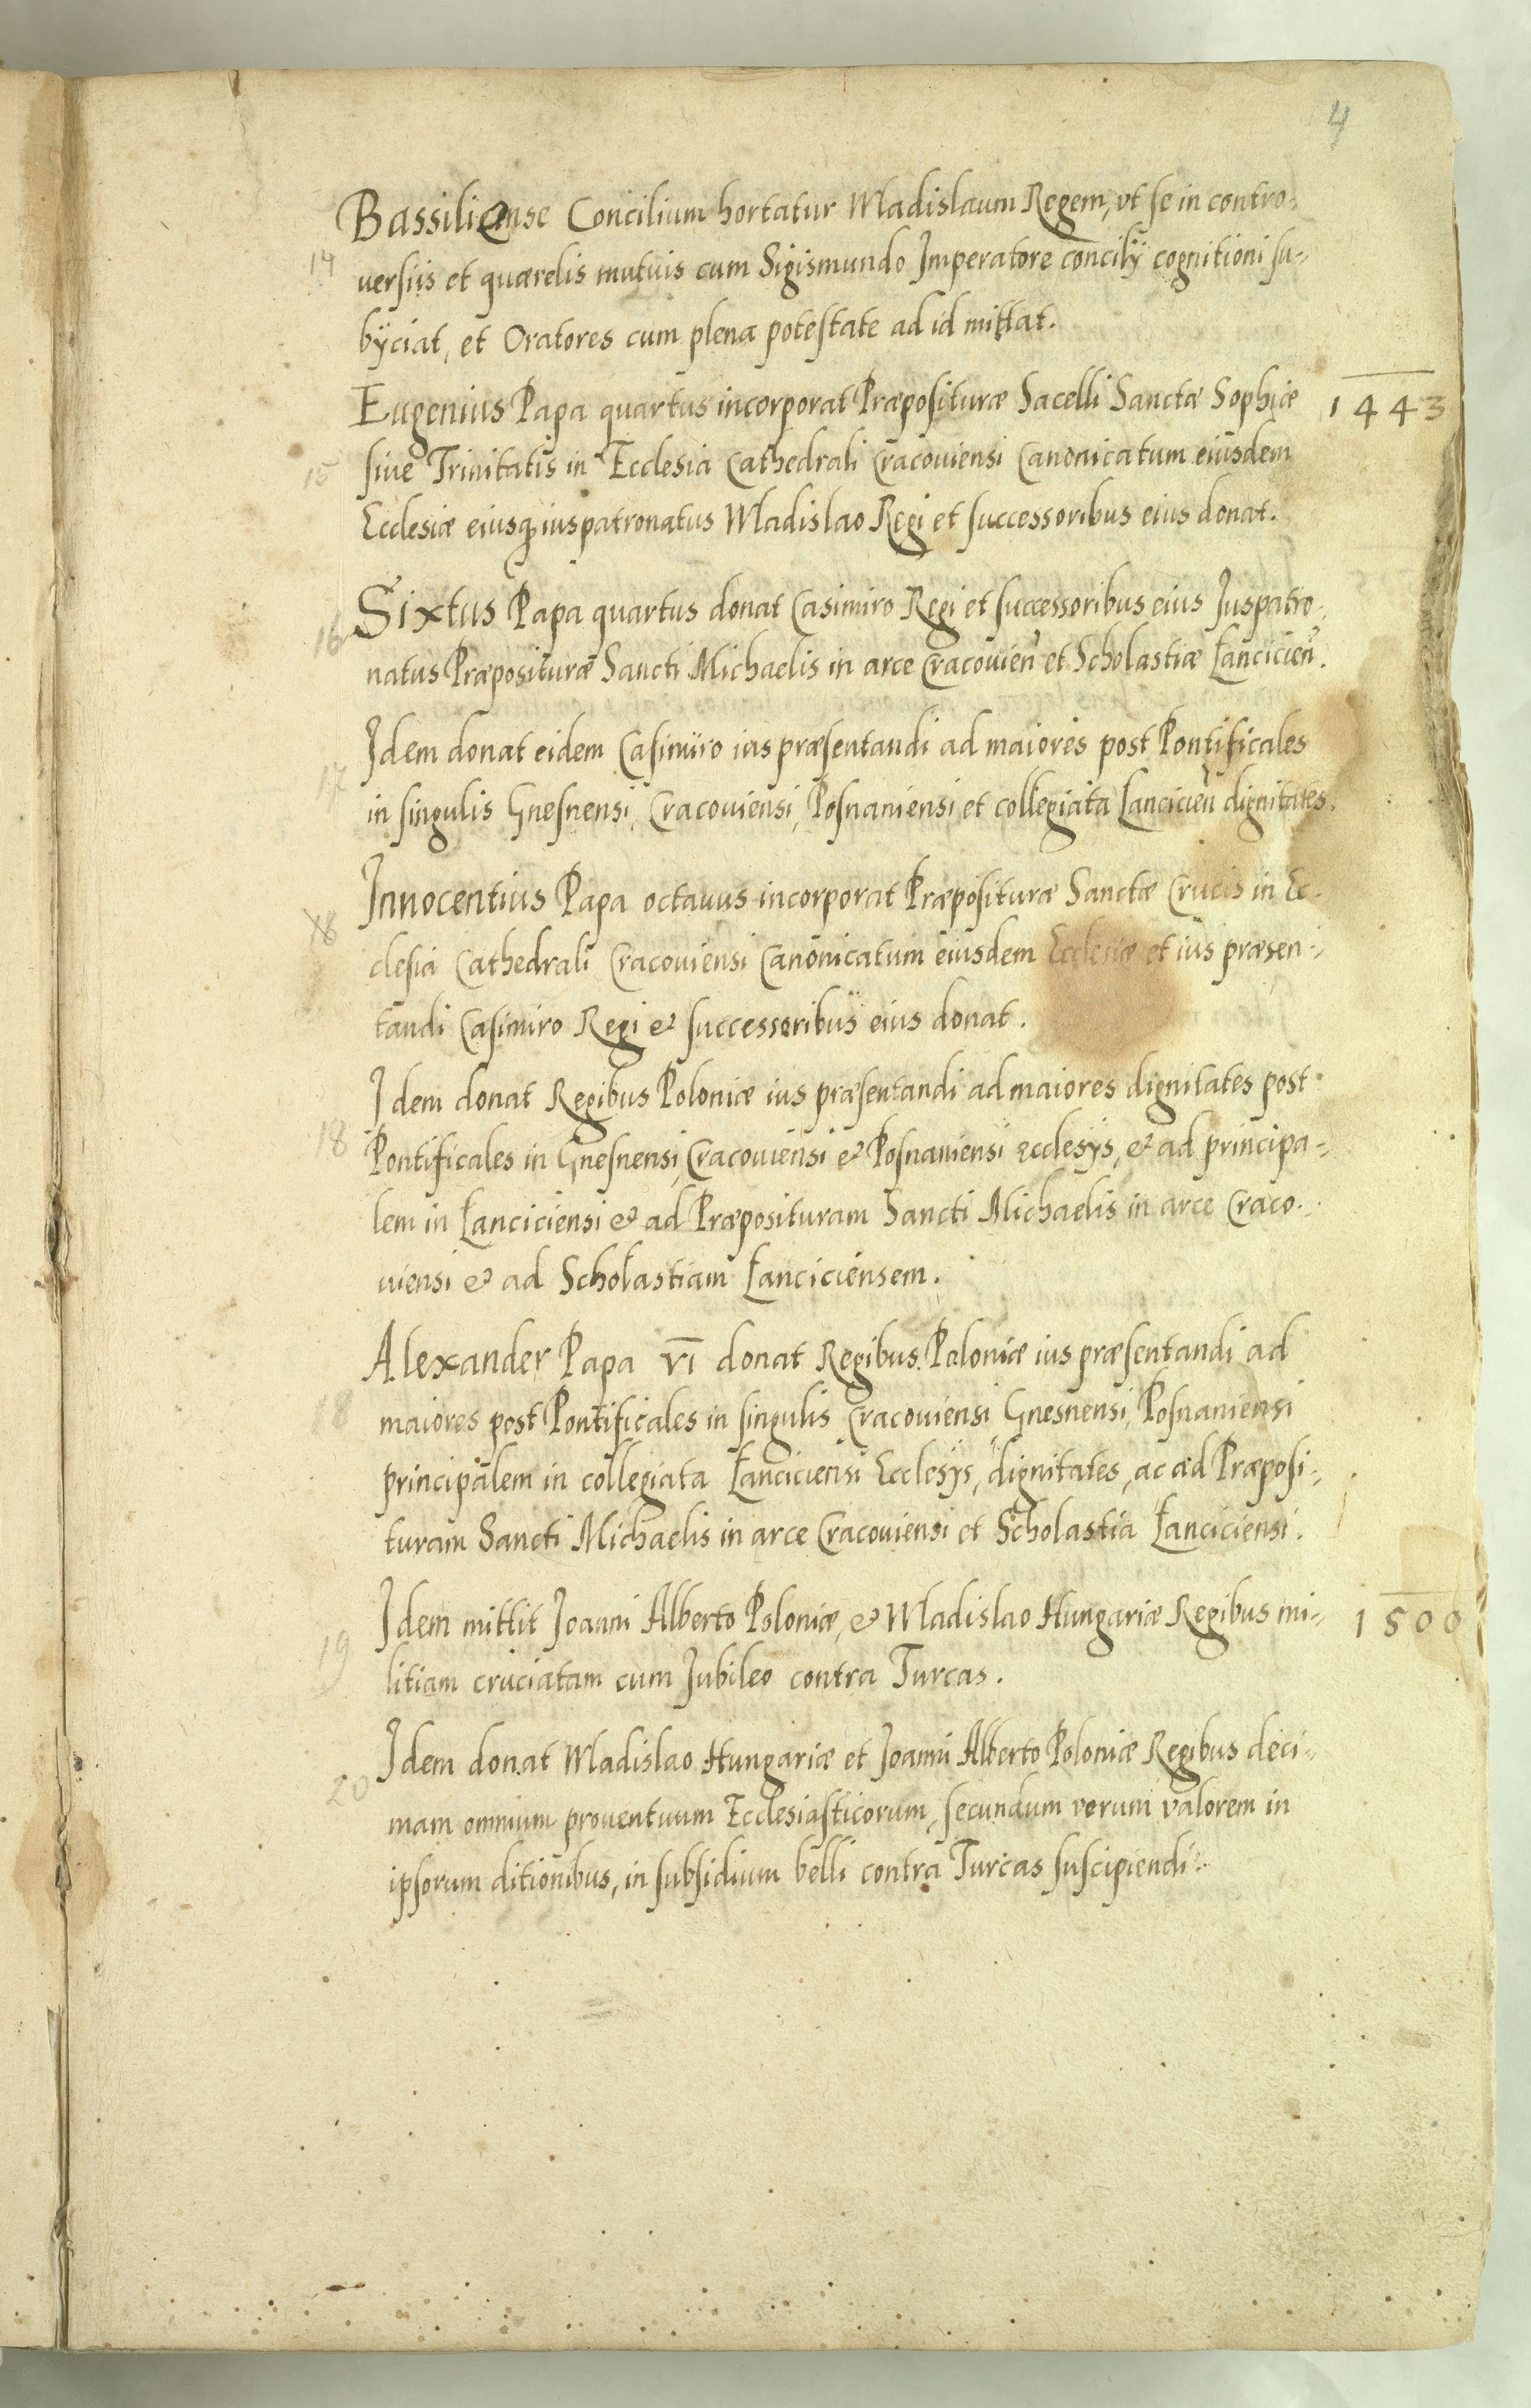 4
Bassiliense Concilium hortatur Wladislaum Regem, vt se in contro-
14
uersiis et quærelis mutuis cum Sigismundo Imperatore concilÿ cognitioni su-
bÿciat, et Oratores cum plena potestate ad id mittat.
Eugenius Papa quartus incorporat Præposituræ Sacelli Sanctæ Sophiæ 1443
15 siue Trinitatis in Ecclesia Cathedrali Cracouiensi Canonicatum eiusdem
Ecclesiæ eiusq iuspatronatus Wladislao Regi et successoribus eius donat.
16 Sixtus Papa quartus donat Casimiro Regi et successoribus eius Juspatro-
natus Præposituræ Sancti Michaelis in arce Cracouien et Scholastiæ Lancicien.
Idem donat eidem Casimiro ius præsentandi ad maiores post Pontificales
17
in singulis Gnesnensi, Cracouiensi, Posnaniensi et collegiata Lancicien dignitates.
Innocentius Papa octauus incorporat Præposituræ Sanctæ Crucis in Ec-
18
clesia Cathedrali Cracouiensi Canonicatum eiusdem Ecclesiæ et ius præsen-
tandi Casimiro Regi & successoribus eius donat.
Idem donat Regibus Poloniæ ius præsentandi ad maiores dignitates post
18 Pontificales in Gnesnensi, Cracouiensi & Posnaniensi ecclesÿs, & ad principa-
lem in Lanciciensi & ad Præposituram Sancti Michaelis in arce Craco-
uiensi & ad Scholastiam Lanciciensem.
Alexander Papa VI donat Regibus Poloniæ ius præsentandi ad
18 maiores post Pontificales in singulis Cracouiensi, Gnesnensi, Posnaniensi
principalem in collegiata Lanciciensi Ecclesÿs, dignitates, ac ad Præposi-
turam Sancti Michaelis in arce Cracouiensi et Scholastia Lanciciensi.
Idem mittit Joanni Alberto Poloniæ, & Wladislao Hungariæ Regibus mi- 1500
19
litiam cruciatam cum Jubileo contra Turcas.
Idem donat Wladislao Hungariæ et Joanni Alberto Poloniæ Regibus deci-
20
mam omnium prouentuum Ecclesiasticorum, secundum verum valorem in
ipsorum ditionibus, in subsidium belli contra Turcas suscipiendi.